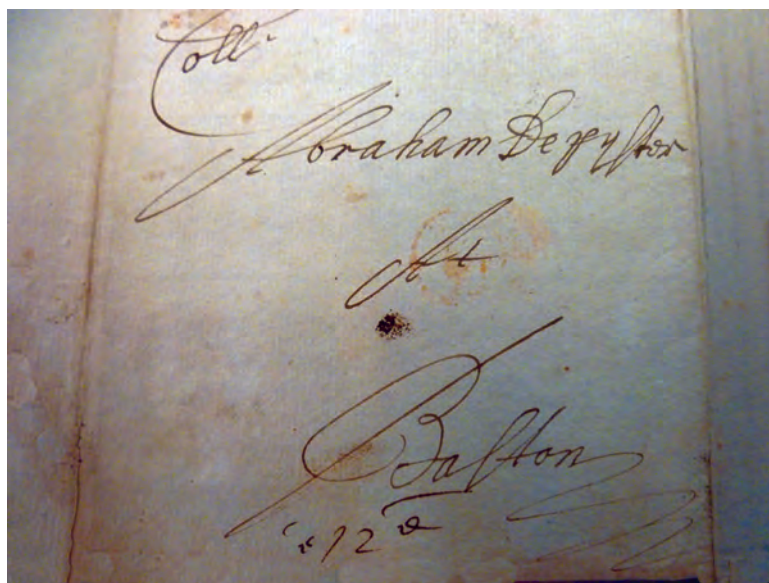 Coll:
Abraham Depyster
At
Baston
12 d